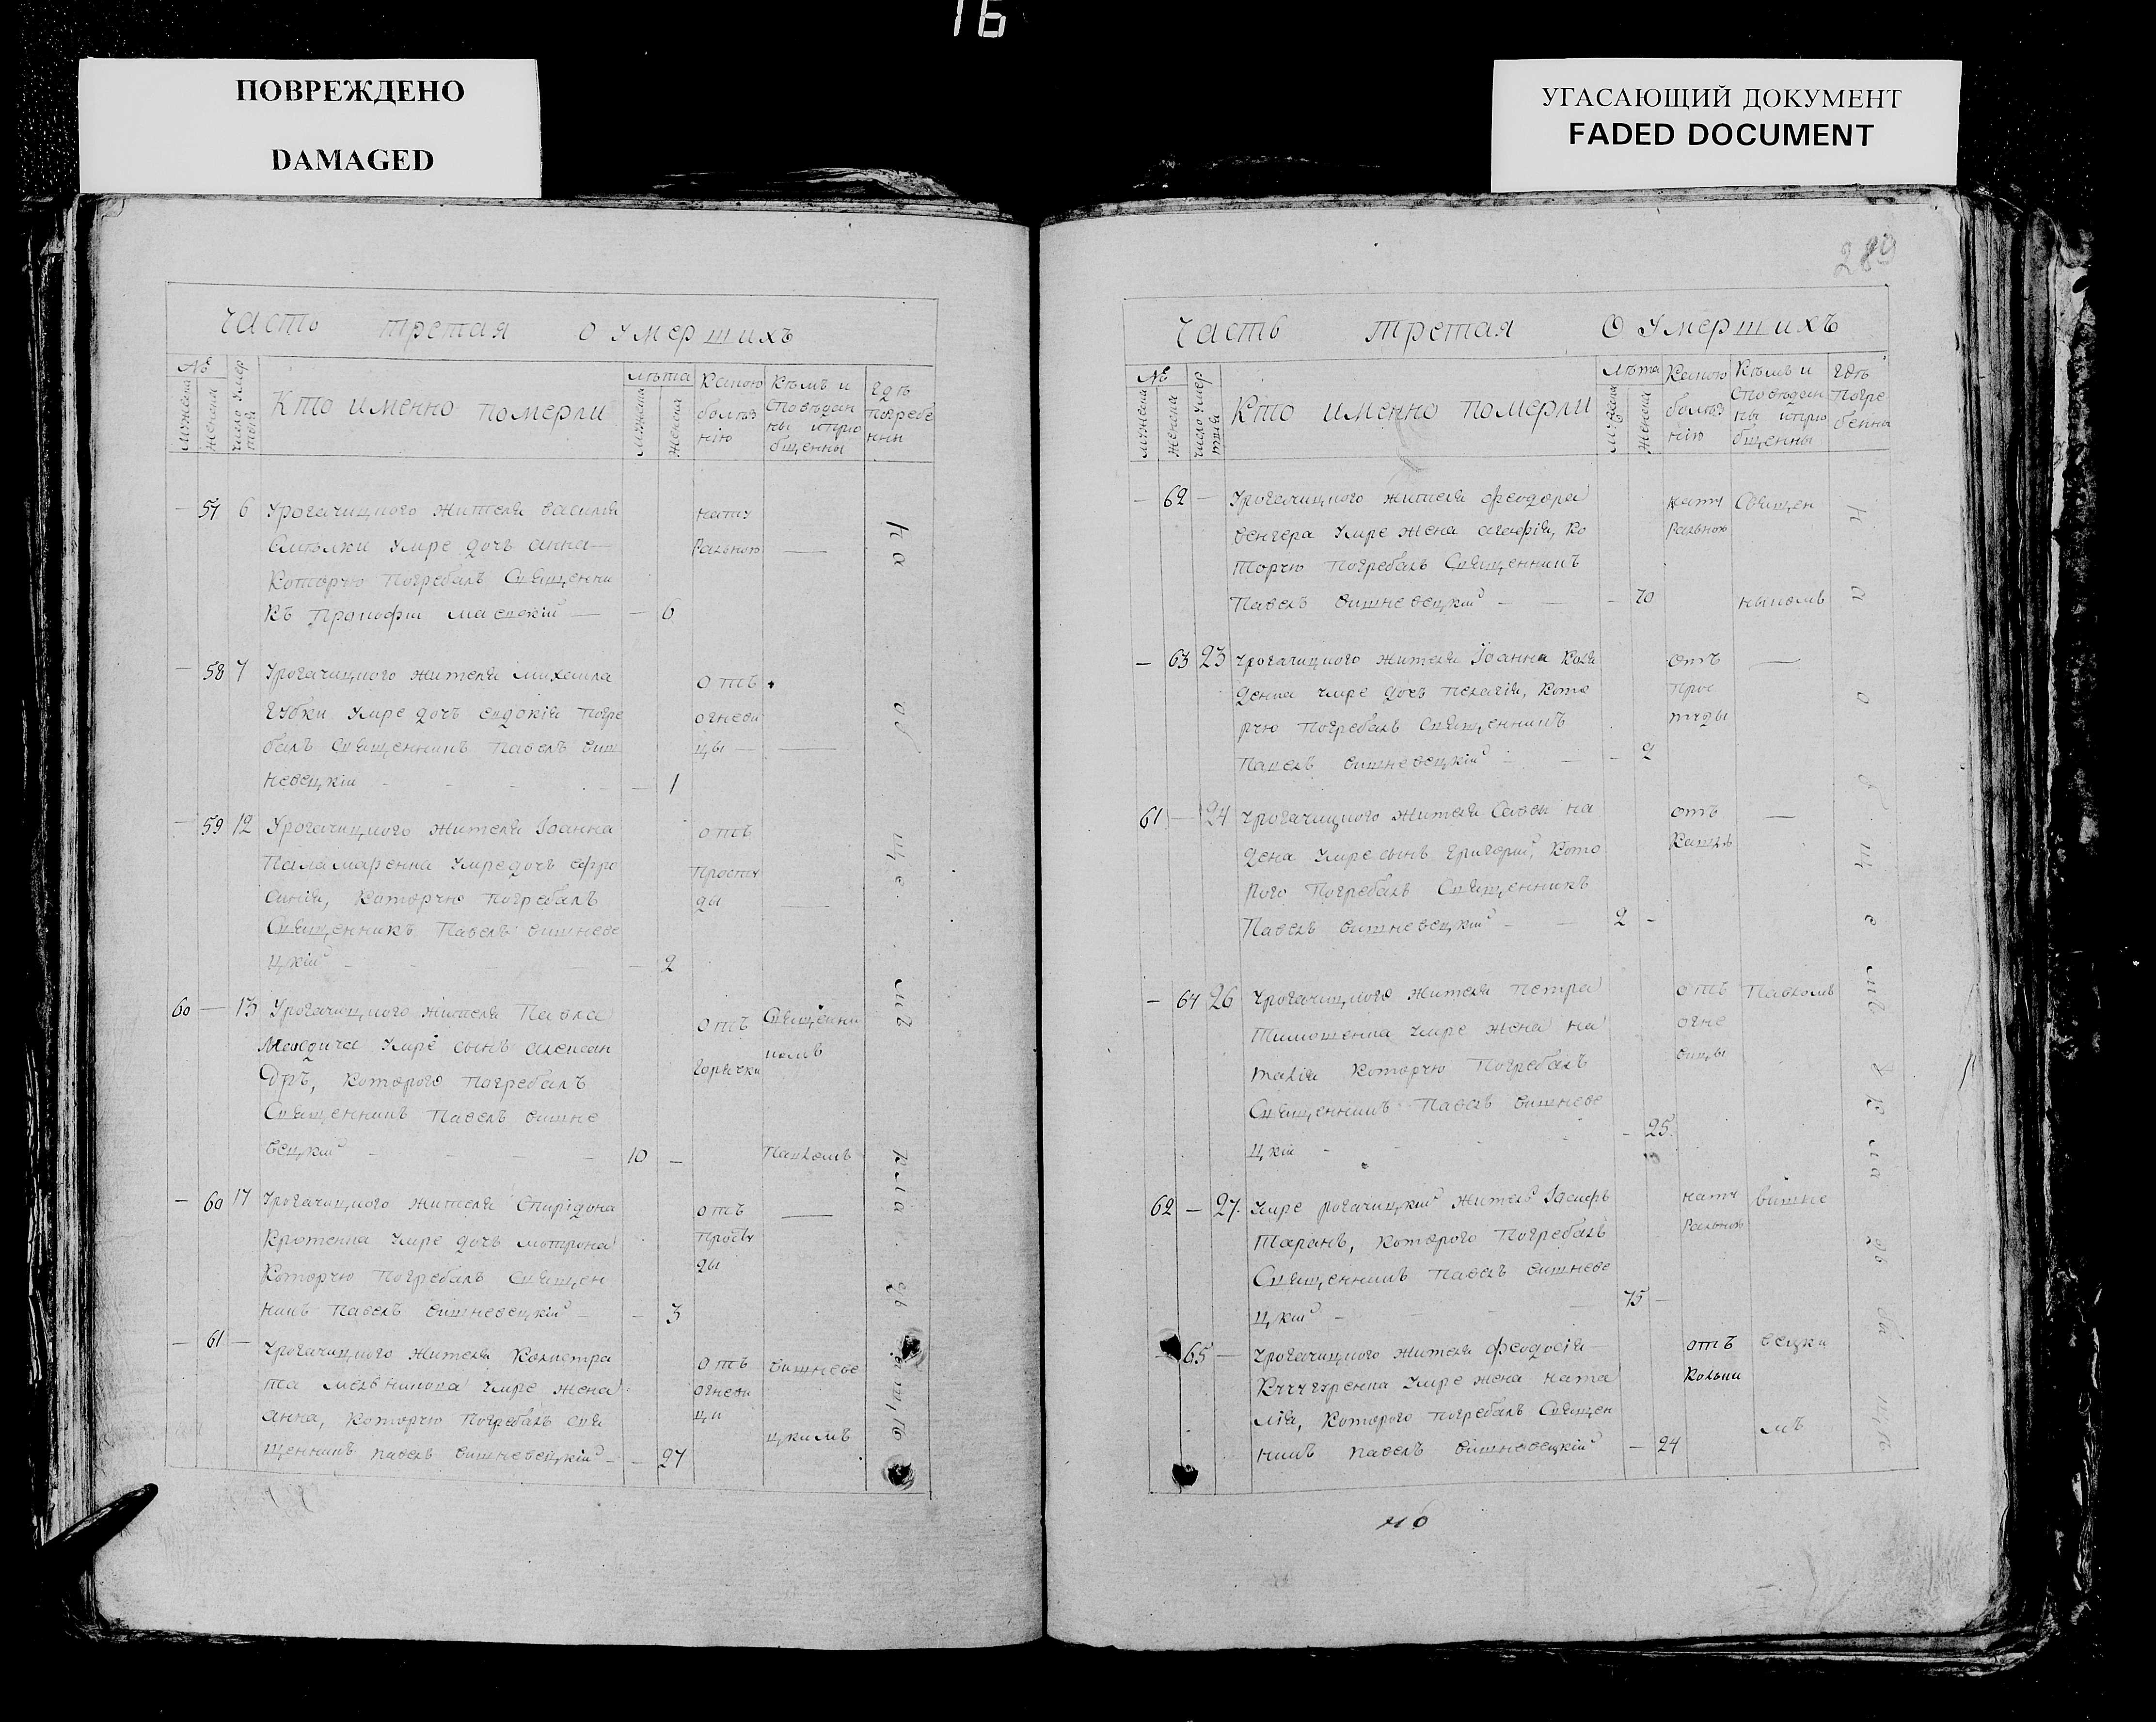 16
ПОВРЕЖДЕНО
DAMAGED
УГАСАЮЩИЙ ДОКУМЕНТ
FADED DOCUMENT
Часть третая о умершихъ
№
мужеска
женска
число умер
шихъ
Кто именно померли
лѣта
мужеска
женска
Какою
болѣз
нію
Кѣмъ и
споведан
ны и прио
бщенны
Гдѣ
погребе
нни
57 6 Урогачицкого жителя василия
умре дочь анна
Которую погребалъ Священни
къ Прокофій маевскій — — 6
нату
ральною —
58 7 Урогачицкого жителя михаила
Губки умре дочь евдокія погре
балъ Священникъ Павелъ виш
невецкій — 1
отъ
огневи
цы —
59 12 Урогачицкого жителя Іоанна
Паламаренка умре дочь ефро
синія, Которую погребалъ
Священникъ Павелъ вишневе
цкій — 2
отъ
Просту
ды —
60 — 13 Урогачицкого жителя Павла
умре сынъ алексан
дръ, которого погребалъ
Священникъ Павелъ вишне
вецкій 10 —
отъ
горячки
Священни
комъ
Павломъ
— 60 17 Урогачицкого жителя Спиридона
умре дочь мотрона
Которую погребалъ Священ
никъ Павелъ вишневецкій — 3
отъ
Просту
ды
—
— 61 — Урогачицкого жителя Калистра
та мельникова умре жена
анна, которую погребалъ свя
щенникъ Павелъ вишневецкій — 27
отъ
огневи
цы
вишневе
цкимъ
на общемъ кладбищѣ
289
Часть третая О умершихъ
№
мужеска
женска
число умер
шихъ
Кто именно померли
Лѣта
мужеска
женска
Какою
болѣз
нію
Кѣмъ и
споведан
ны и прио
бщенны
Гдѣ
погре
бенны
— 62 — Урогачицкого жителя феодора
венгера умре жена агафія, ко
торую погребалъ Священникъ
Павелъ вишневецкій — — 70
нату
ральною
Священ
никомъ
— 63 23 Урогачицкого жителя Іоанна Коля
денка умре дочь пелагія, кото
рую погребалъ Священникъ
Павелъ вишневецкій — 2
отъ
Прос
туды
—
61 — 24 Урогачицкого жителя Савви на
дена умре сынъ григорій, кото
рого погребалъ Священникъ
Павелъ вишневецкій — 2 —
отъ
Кашлѣ
—
— 64 26 Урогачицкого жителя петра
Тимошенка умре жена на
талія которую погребалъ
Священникъ Павелъ вишневе
цкій — 25
отъ
огне
вицы
Павломъ
62 — 27. Умре рогачицкій житель Іосифъ
Таранъ, которого погребалъ
Священникъ Павелъ вишневе
цкій — 75 —
нату
ральною
вишне
— 65 — Урогачицкого жителя феодосія
умре жена ната
лія, которого погребалъ Священ
никъ Павелъ вишневецкій — 24
отъ
Кольки
вецки
мъ
на общемъ кладбищѣ